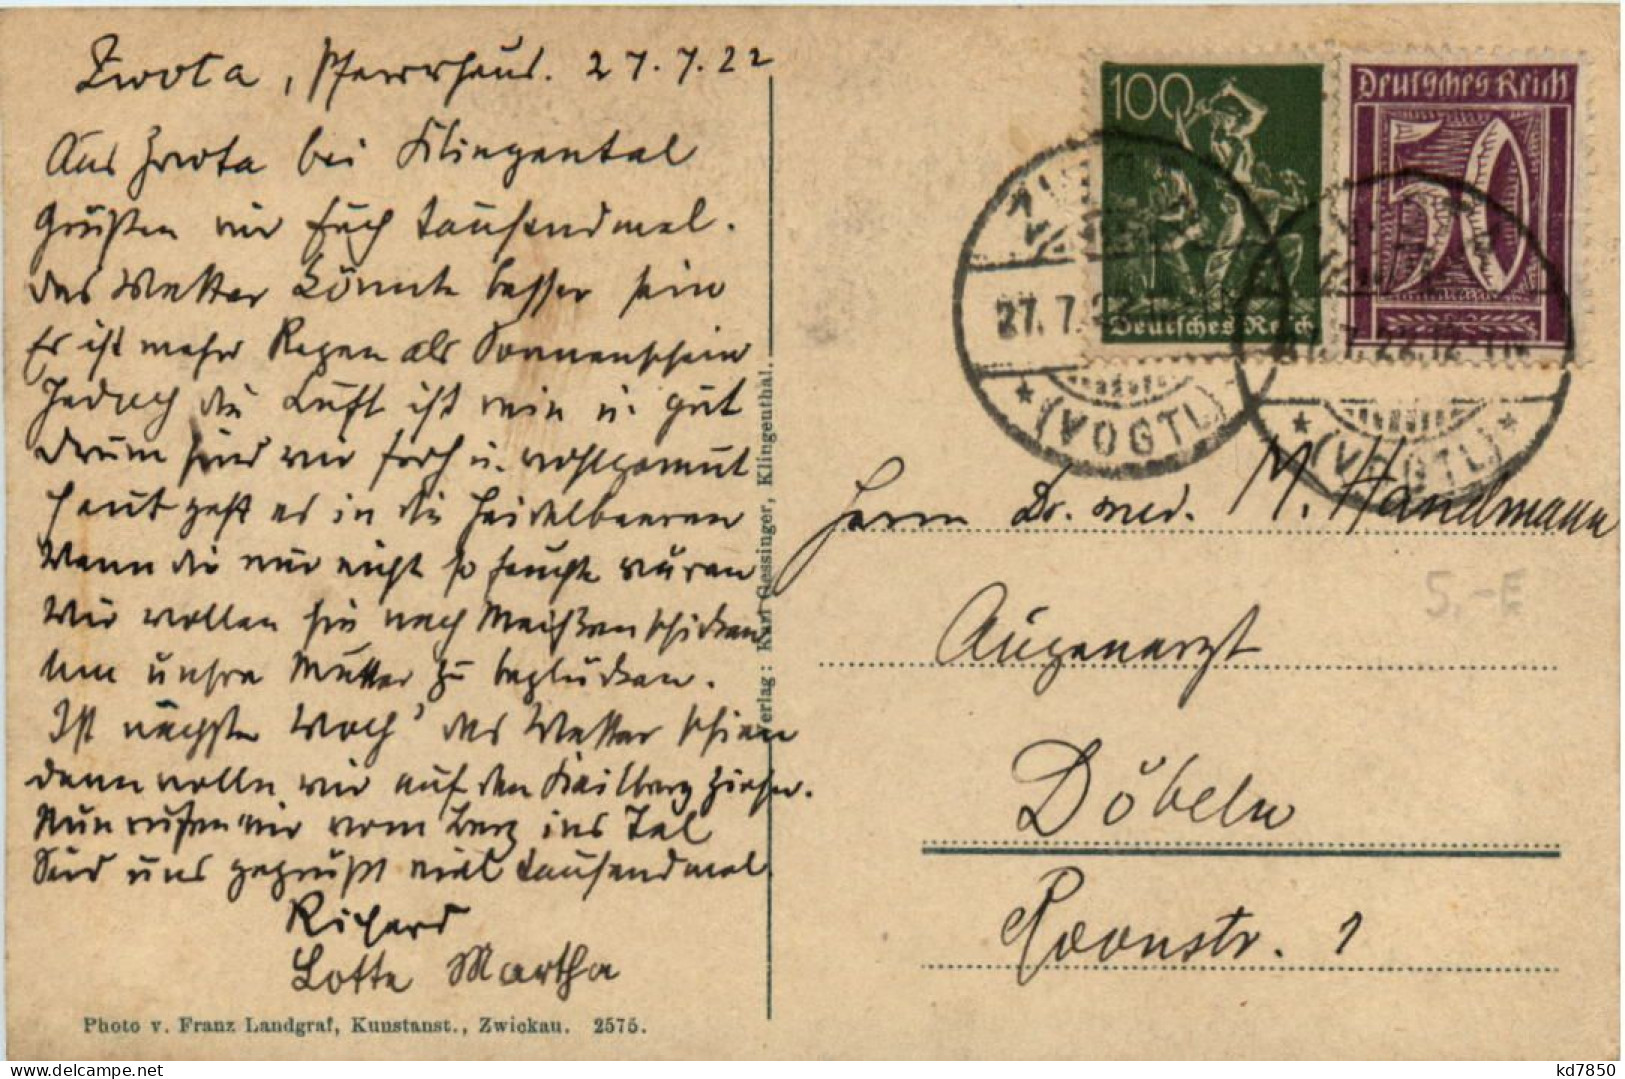 Zwota, Pfarrhaus. 27.7.22
Aus Zwota bei Klingental
Grüßen wir Euch tausendmal.
das Wetter könnte besser sein
Es ist mehr Regen als Sonnenschein
Jedoch die Luft ist rein u. gut
drum sind wir froh u. wohlgemut
heut geht es in die Heidelbeeren
Wenn die nur nicht so feucht wären
Wir wollen sie nach Meißen schicken
Um unsre Mutter zu beglücken.
Ist nächste Woch' das Wetter schien
dann wolln wir auf den Keilberg ziehn.
Nun rufen wir vom Berg ins Tal
Seid uns gegrüßt viel tausendmal.
Richard
Lotte Martha
Photo v. Franz Landgraf, Kunstanst., Zwickau. 2575.
Verlag: Karl Gessinger, Klingenthal.
100
Deutsches Reich
Deutsches Reich
50
27.7.22
* (VOGTL)
27.7.22.12
* (VOGTL) *
Herrn Dr. med. M. Handmann
5.-E
Augenarzt
Döbeln
Roonstr. 1
kd7850